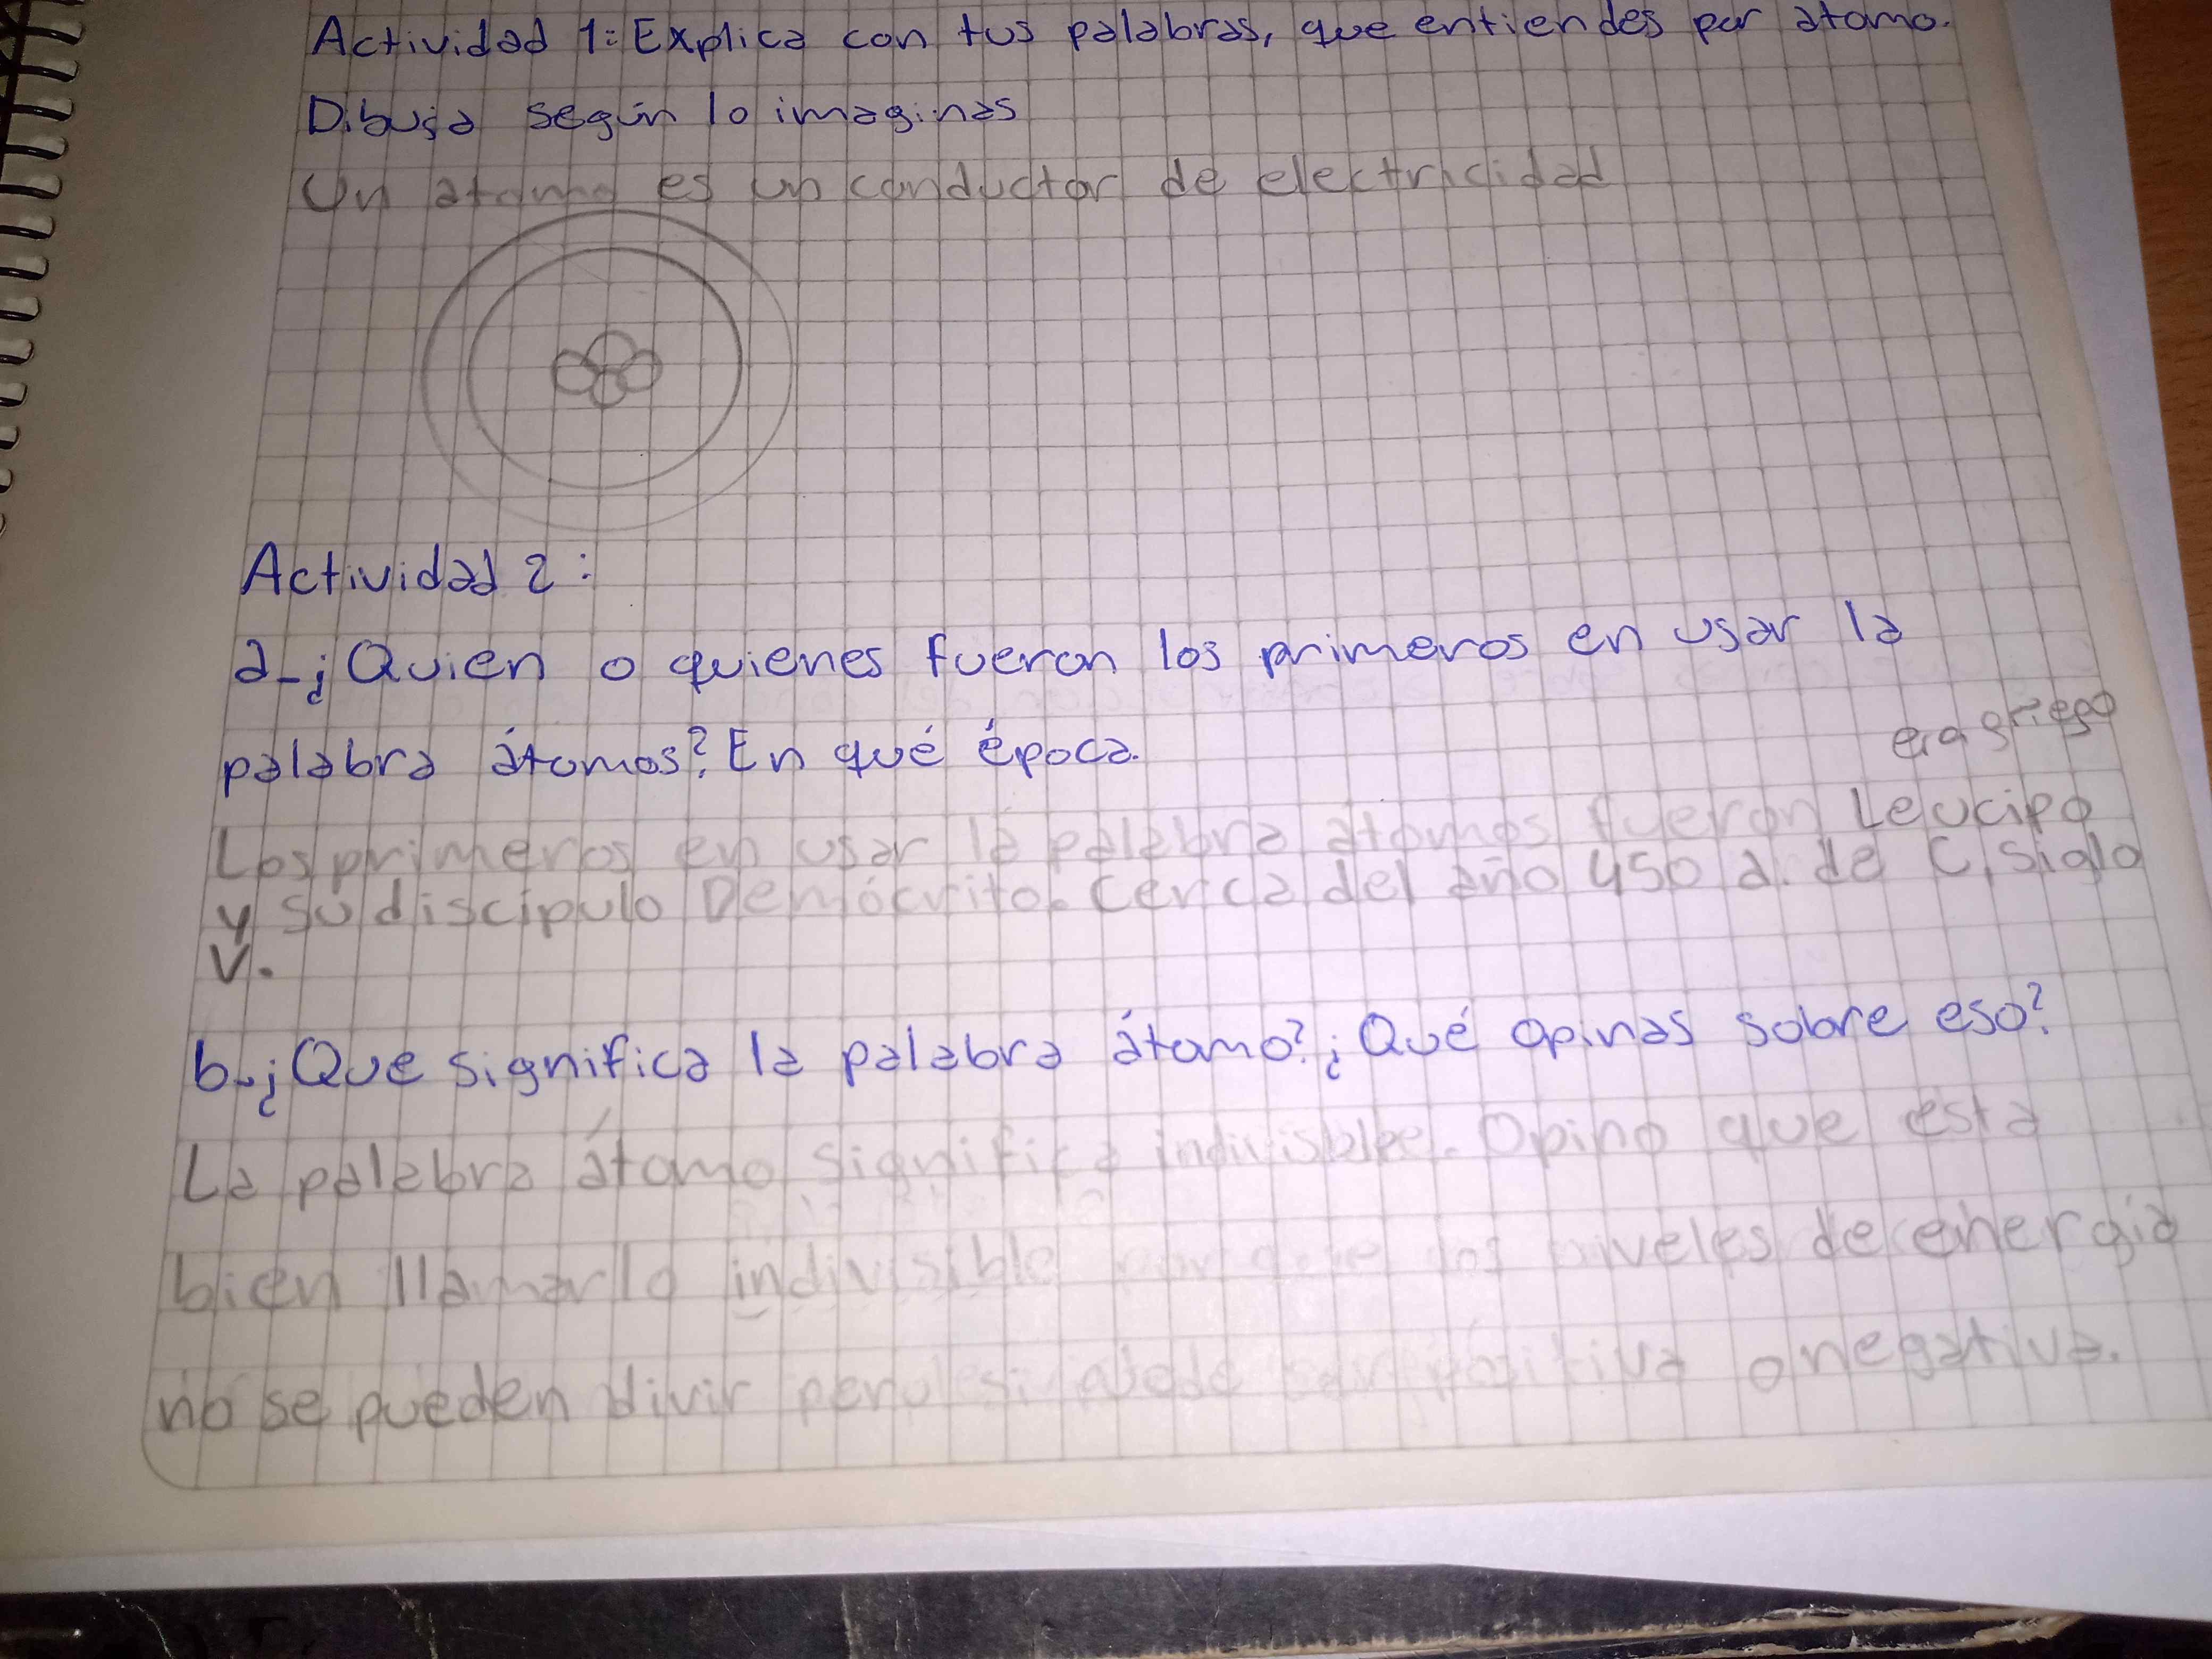 Actividad 1: Explica con tus palabras, que entiendes por atomo.
Dibuja según lo imaginas
Un atomo es un conductor de electricidad
Actividad 2:
a-¿Quien o quienes fueron los primeros en usar la
palabra átomos? En qué época.
era griego
Los primeros en usar la palabra átomos fueron Leucipo
y su discípulo Demócrito. Cerca del año 450 a. de C, siglo
V.
b-¿Que significa la palabra átomo? ¿Qué opinas sobre eso?
La palabra átomo significa indivisible. Opino que esta
bien llamarlo indivisible porque los niveles de energia
no se pueden divir pero si puede ser positiva o negativa.